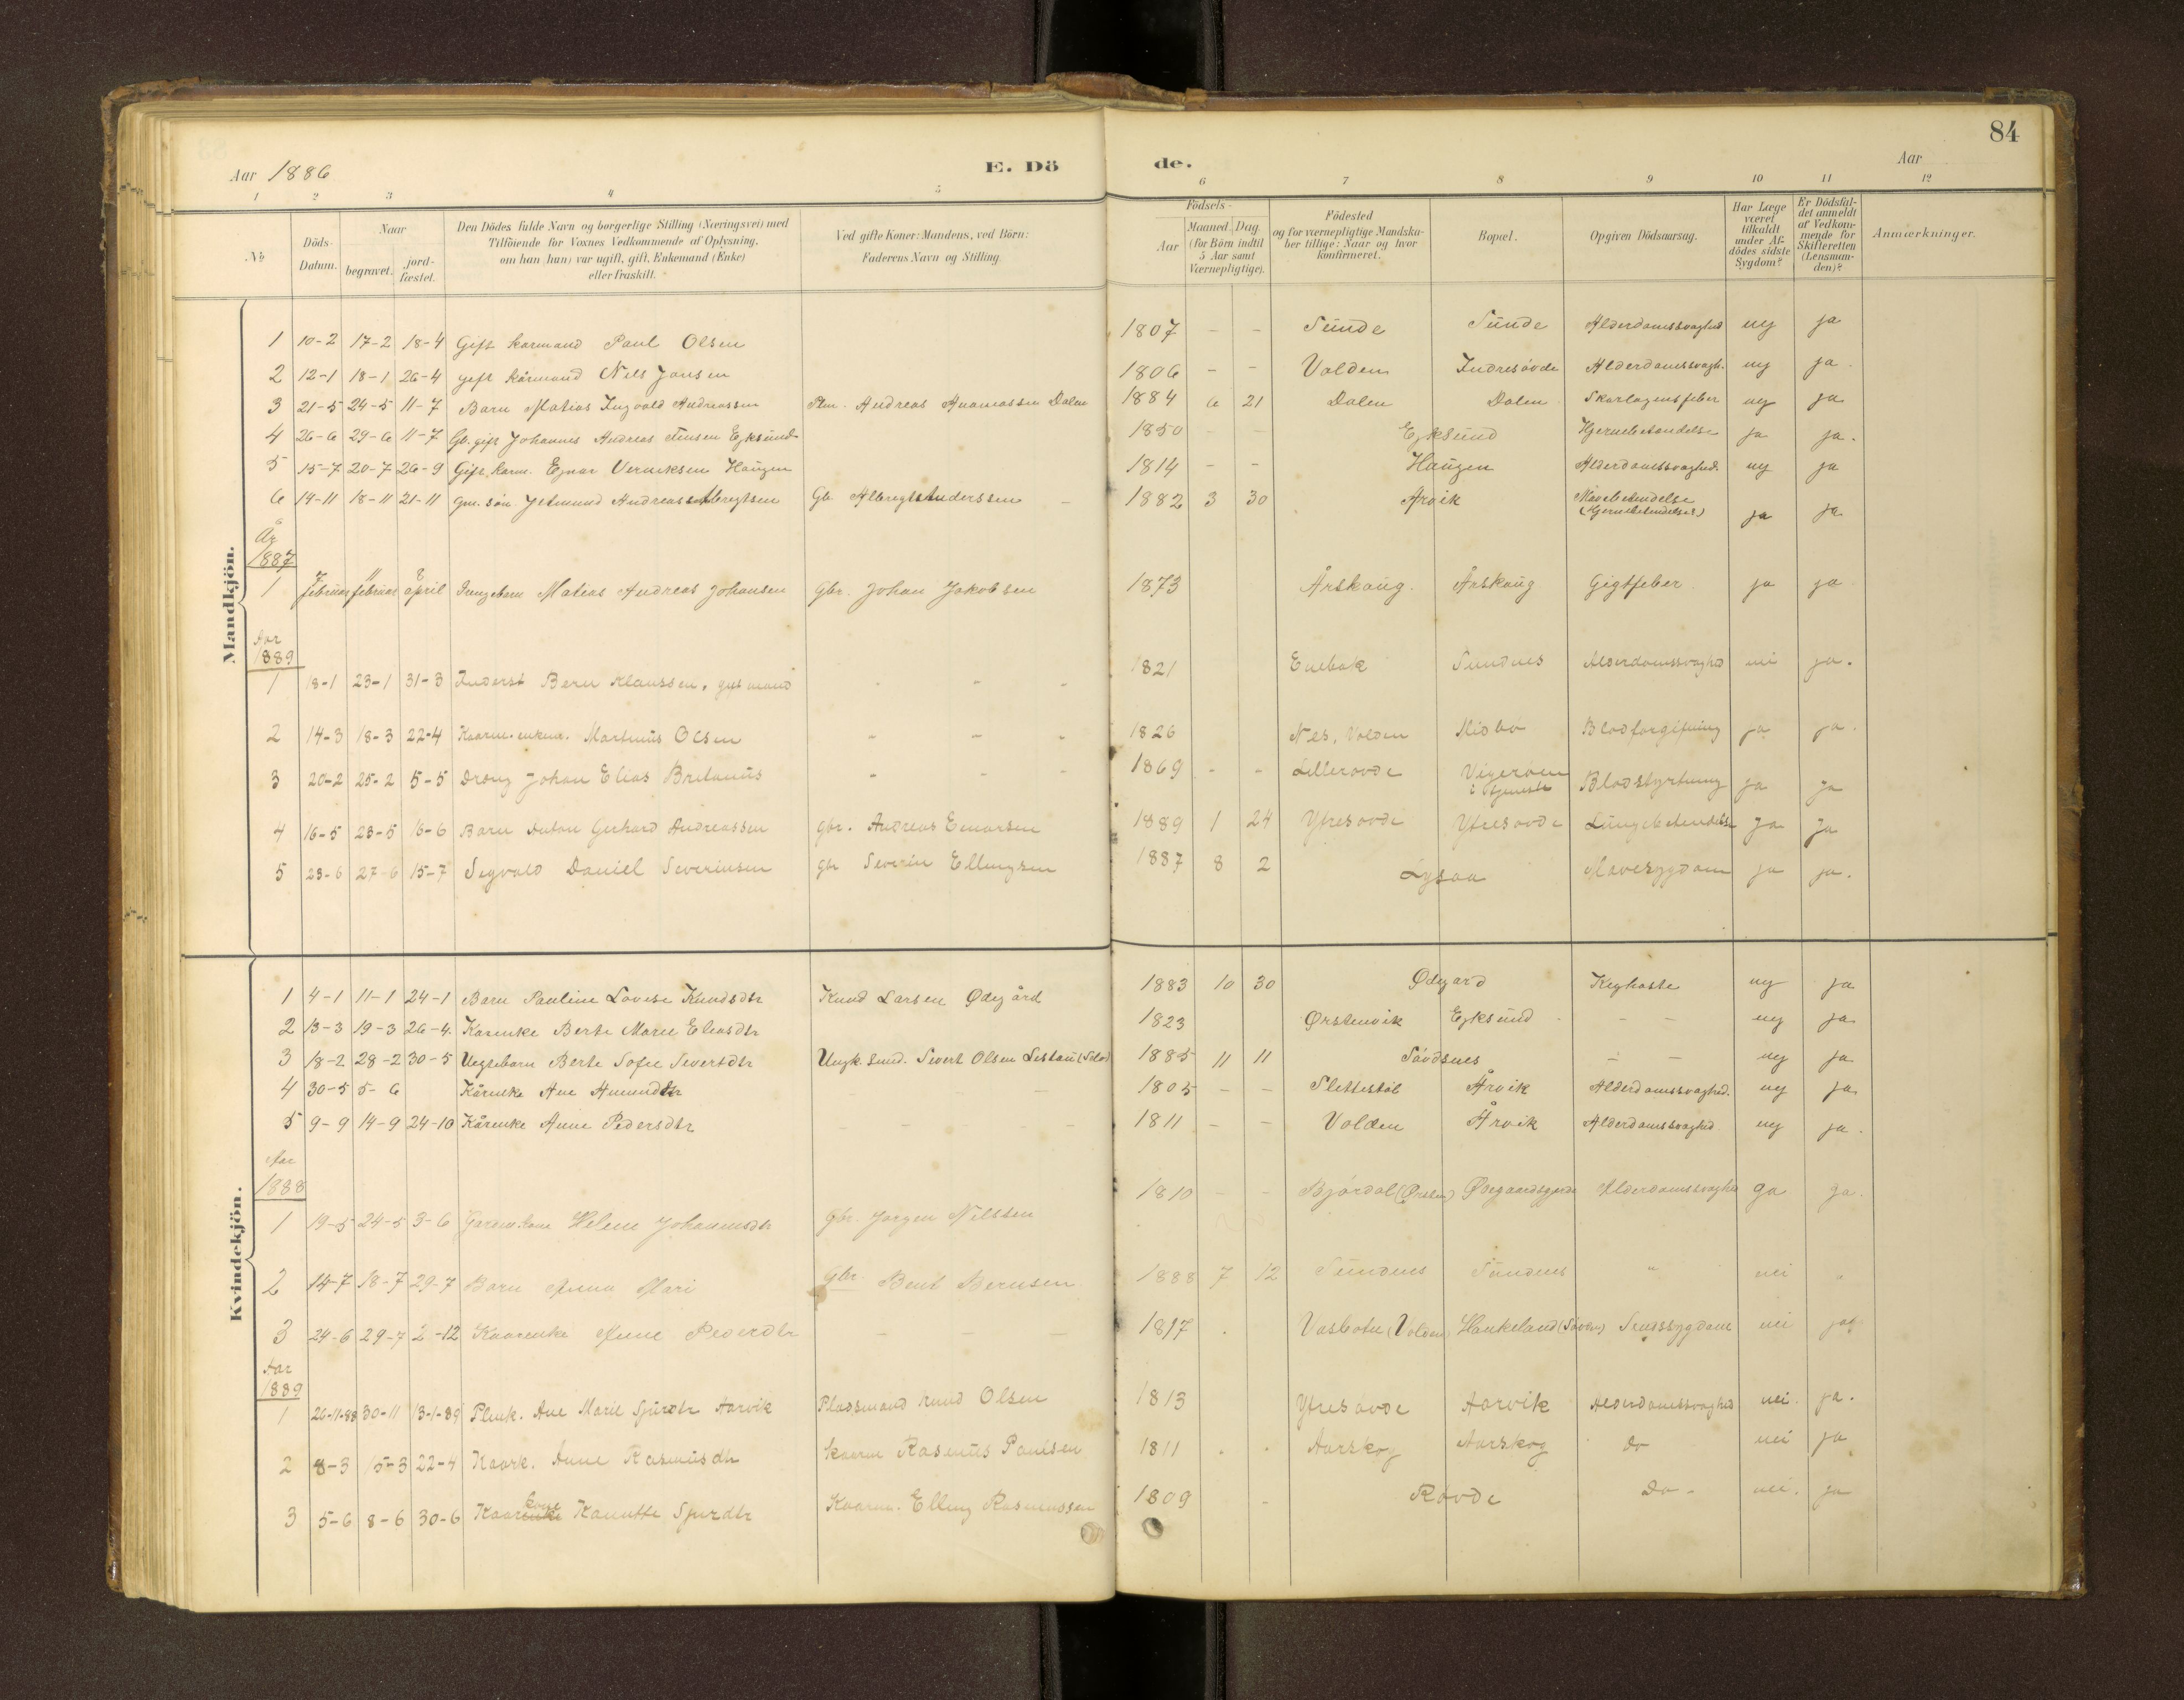 84
Aar 1886
E. Döde.
Aar
1 2 3 4 5 6 7 8 9 10 11 12
№
Döds-Datum.
Naar begravet. jordfæstet.
Den Dödes fulde Navn og borgerlige Stilling (Næringsvei) med Tilföiende for Voxnes Vedkommende af Oplysning, om han (hun) var ugift, gift, Enkemand (Enke) eller fraskilt.
Ved gifte Koner: Mandens, ved Börn: Faderens Navn og Stilling.
Födsels- Aar Maaned Dag (for Börn indtil 5 Aar samt Værnepligtige).
Födested og for værnepligtige Mandskaber tillige: Naar og hvor konfirmeret.
Bopæl.
Opgiven Dödsaarsag.
Har Læge været tilkaldt under Afdödes sidste Sygdom?
Er Dödsfaldet anmeldt af Vedkommende for Skifteretten (Lensmanden)?
Anmærkninger.
Mandkjön.
1 10-2 17-2 18-4 Gift karmand Paul Olsen 1807 - - Sunde Sunde Alderdomssvaghed ney ja
2 12-1 18-1 26-4 gift kårmand Nils Jansen 1806 - - Volden Indresövde Alderdomssvagh. ney ja.
3 21-5 24-5 11-7 Barn Matias Ingvald Andreassen Andreas Dalen 1884 6 21 Dalen Dalen Skarlagensfeber ney ja
4 26-6 29-6 11-7 Gb. gift Johannes Andreas Jensen Eyksund 1850 - - Eyksund Hjernebetendelse ja ja.
5 15-7 20-7 26-9 Gift karm. Ejnar Verniksen Haugen 1814 - - Haugen Alderdomssvaghed. ney ja
6 14-11 18-11 21-11 Gm. sön Andreas Albregtsen Gb. Albregt Anderssen - 1882 3 30 Årvik Mavebetendelse (Hjernebetendelse) ja ja
År 1887
1 7 februar 11 februar 8 april Matias Andreas Johansen Gbr. Johan Jakobsen 1873 Årskaug. Årskaug Gigtfeber ja ja
Aar 1889
1 18-1 23-1 31-3 Inderst Bern Klaussen, gift mand - - - 1821 Enebak Sundnes Alderdomssvaghed nei ja.
2 14-3 18-3 22-4 Kaarm. enkem. Martinus Olsen - - - 1826 Nes, Volden Midbö Blodforgiftning ja ja.
3 20-2 25-2 5-5 Dreng Johan Elias Britanus - - - 1869 - - Lillesövde i tjeneste Blodstyrtning ja ja
4 16-5 23-5 16-6 Barn Anton Gerhard Andreassen gbr. Andreas Einarsen 1889 1 24 Ytresövde Ytresövde Lungebetendelse ja ja
5 23-6 27-6 15-7 Sigvald Daniel Severinsen gbr Severin Ellingsen 1887 8 2 Lysaa Mavesygdom ja ja.
Kvindekjön.
1 4-1 11-1 24-1 Barn Pauline Lovise Knudsdtr Knud Larsen Ødegård 1883 10 30 Ødegard Kighoste ney ja
2 13-3 19-3 26-4. Karenke Berte Marie Eliasdtr 1823 Ørstenvik Eyksund - - - ney ja
3 18-2 28-2 30-5 Uegtebarn Berte Sofie Sivertdtr Ungk. Sivert Olsen 1885 11 11 Sövdsnes - - ney ja
4 30-5 5-6 Kårenke Ane Amunddtr 1805 - - Slettestöl Årvik Alderdomssvaghed. ney ja
5 9-9 14-9 24-10 Kårenke Anne Pedersdtr - - - - 1811 - - Volden Årvik Alderdomssvaghed ney ja.
Aar 1888
1 19-5 24-5 3-6 Helene Johannesdtr Gbr. Jorgen Nilssen 1810 - - Björdal (Ørsten) Alderdomssvaghed ja ja.
2 14-7 18-7 29-7 Barn Anna Mari Gbr Bent Bernsen 1888 7 12 Sundnes Sundnes " nei "
3 24-6 29-7 2-12 Kaarenke Anne Pederdtr - - - 1817 Vasbotn (Volden) Haukeland (Sövden) nei ja
Aar 1889
1 26-11-88 30-11 13-1-89 Ane Marie Sjurdtr Aarvik Pladsmand Knud Olsen 1813 Ytresövde Aarvik Alderdomssvaghed nei. ja.
2 8-3 15-3 22-4 Kaark. Anne Rasmusdtr kaarm Rasmus Paulsen 1811 . . Aarskog Aarskog do nei ja
3 5-6 8-6 30-6 Kaarkone Sjurdtr Kaarm. Elling Rasmussen 1809 - Rövde Do - nei. ja